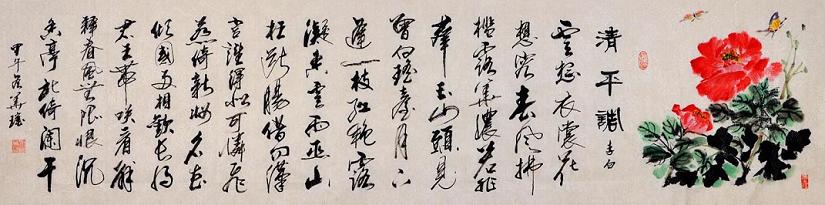 清平調
李白
雲想衣裳花
想容春風拂
檻露華濃若非
群玉山頭見
會向瑤臺月下
逢一枝紅艷露
凝香雲雨巫山
枉斷腸借問漢
宮誰得似可憐飛
燕倚新妝名花
傾國兩相歡長得
君王帶笑看解
釋春風無限恨沉
香亭北倚闌干
甲午